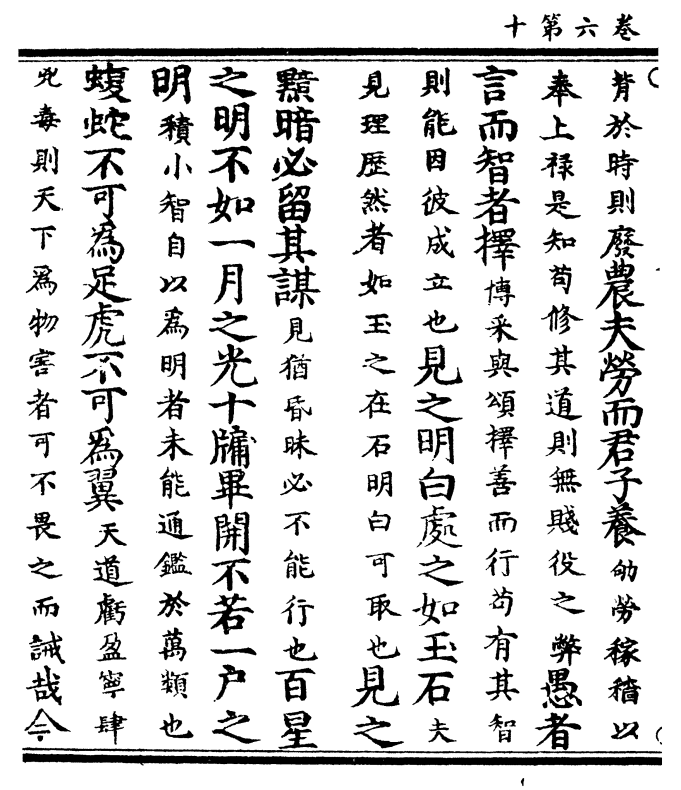 卷六第十
背於時則廢農夫勞而君子養劬勞稼穡以
奉上祿是知苟修其道則無賤役之弊愚者
言而智者擇博采與頌擇善而行苟有其智
則能因彼成立也見之明白處之如玉石夫
見理歷然者如玉之在石明白可取也見之
黬暗必留其謀見猶昏昧必不能行也百星
之明不如一月之光十牖畢開不若一户之
明積小智自以為明者未能通鑑於萬類也
蝮蛇不可為足虎不可為翼天道虧盈寧肆
兇毒則天下為物害者可不畏之而誡哉今